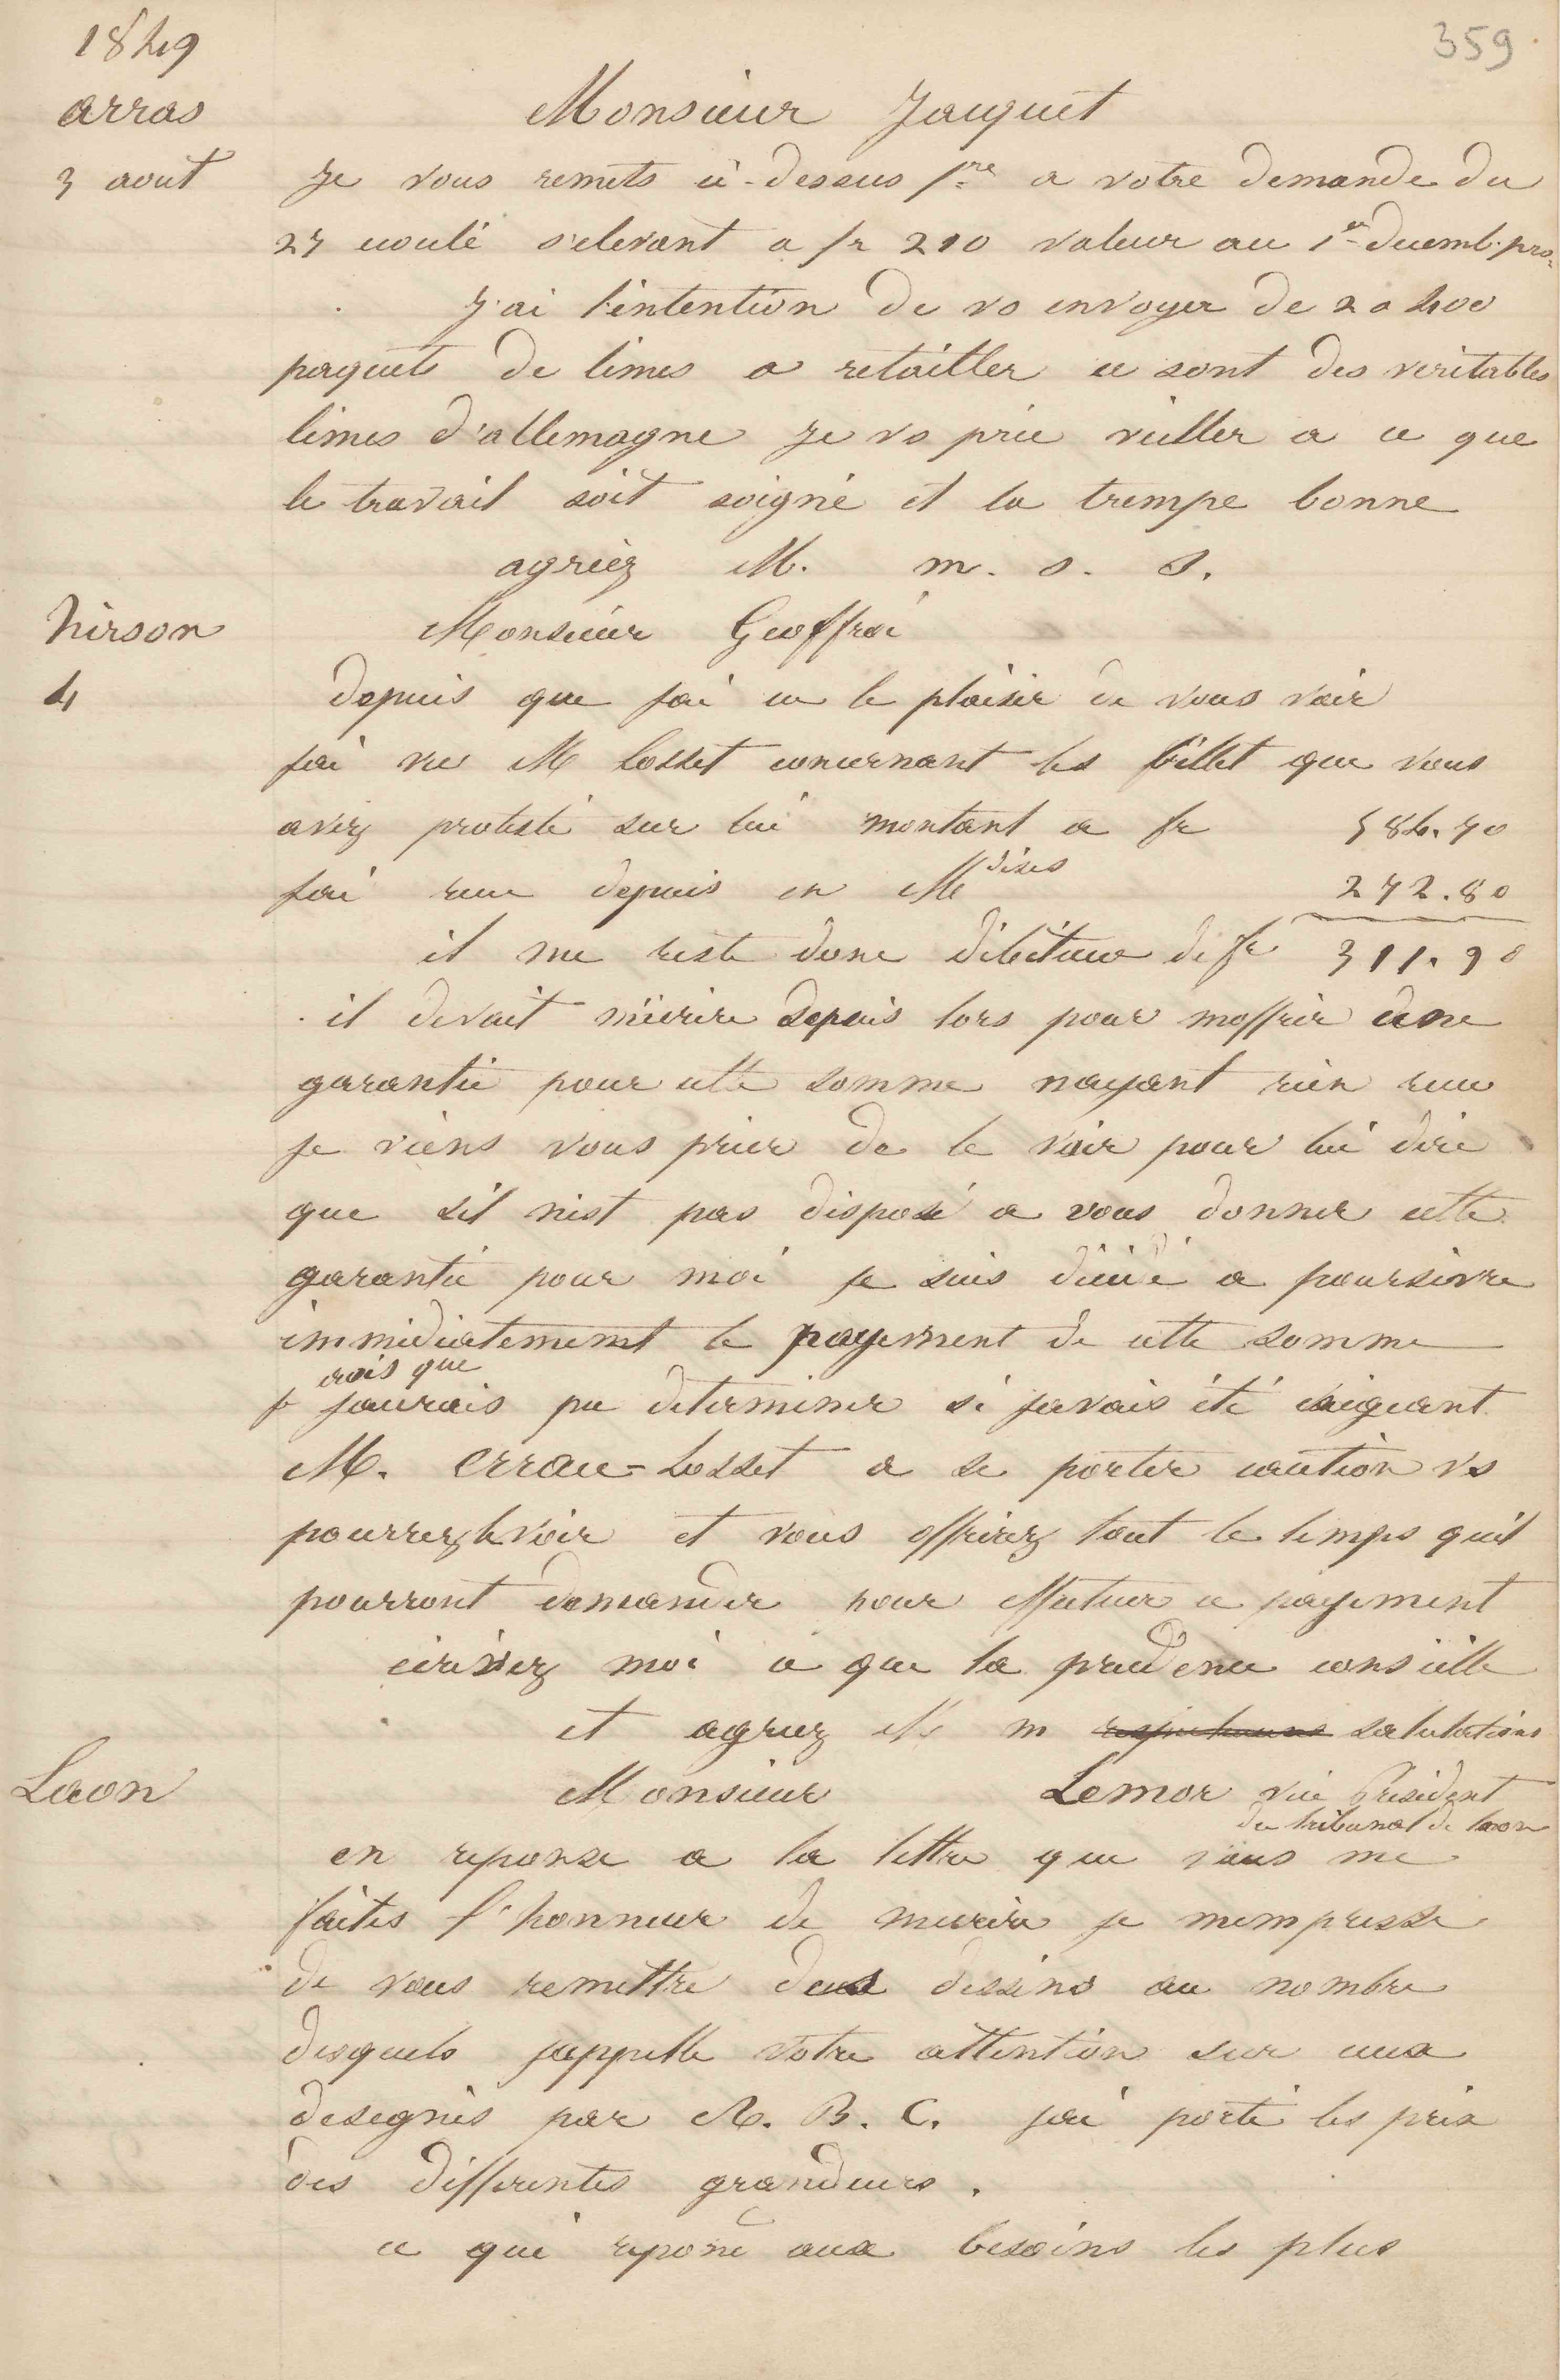 1849
359
arras
Monsieur Jacquet
3 aout
Je vous remets ci-dessus fre a votre demande du
27 ecoulé s'elevant a fr 210 valeur au 1er decemb. pro.
J'ai l'intention de vs envoyer de 2 a 400
paquets de limes a retailler ce sont des veritables
limes d'allemagne Je vs prie veiller a ce que
le travail soit soigné et la trempe bonne
agréez M. m. s. s.
hirson
Monsieur Geoffroi
4
depuis que jai eu le plaisir de vous voir
jai vu M Cosset concernant les billet que vous
avez protesté sur lui montant a fr 584.70
jai recu depuis en Mdises 272.80
il me reste donc débiteur de fr 311.90
il devait m'écrire depuis lors pour moffrir une
garantie pour cette somme nayant rien recu
je viens vous prier de le voir pour lui dire
que sil nest pas disposé a vous donner cette
garantie pour moi je suis décidé a poursivre
immédiatement le payement de cette somme
crois que
je jaurais pu determiner si javais été exigeant
M. Cosset a se porter caution vs
pourrez le voir et vous offrirez tout le temps quil
pourront demander pour effectuer ce payement
écrivez moi ce que la prudence conseille
et agreez M m salutations
Laon
Monsieur Lemor vice Président
du tribunal de laon
en reponse a la lettre que vous me
faites l'honneur de mecrire je mempresse
de vous remettre deux dessins au nombre
desquels jappelle votre attention sur ceux
desegnés par A. B. C. jai porté les prix
des differentes grandeurs.
ce qui repond aux besoins les plus